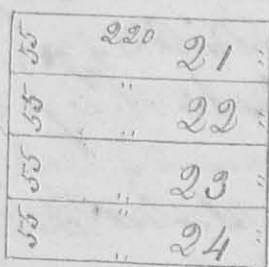 55 220 21 "
55 " 22 "
55 " 23 "
55 " 24 "